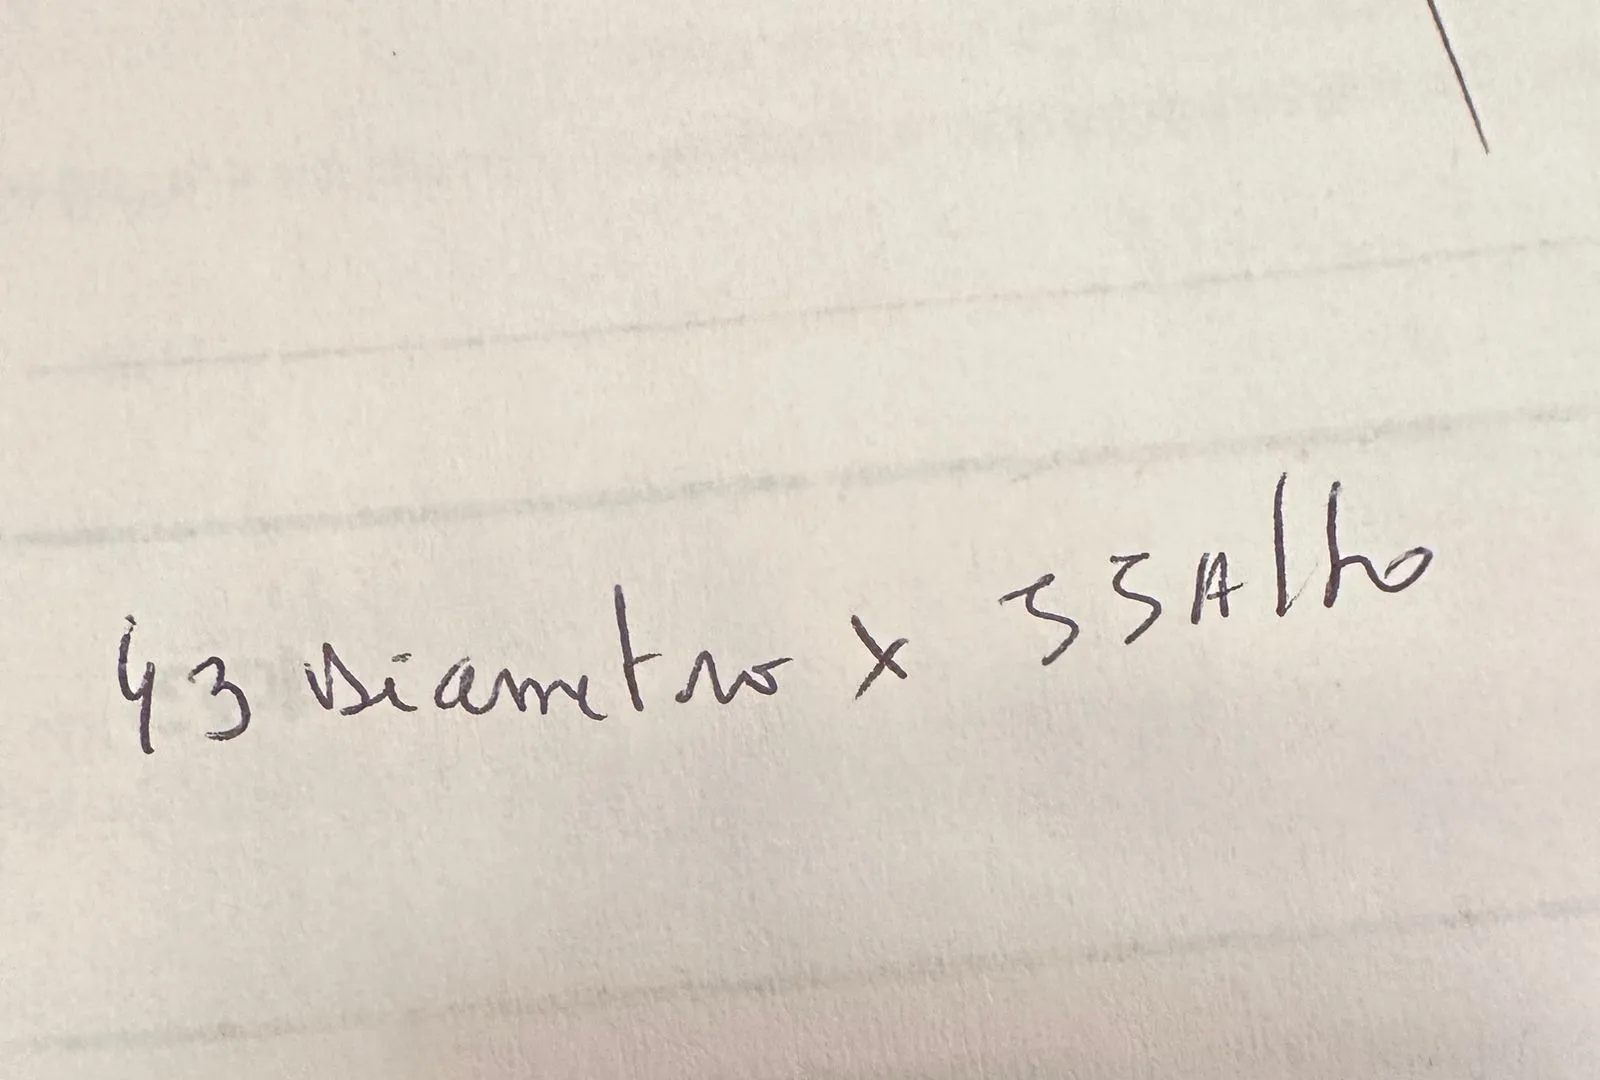 43 Diametro x 55 Alto